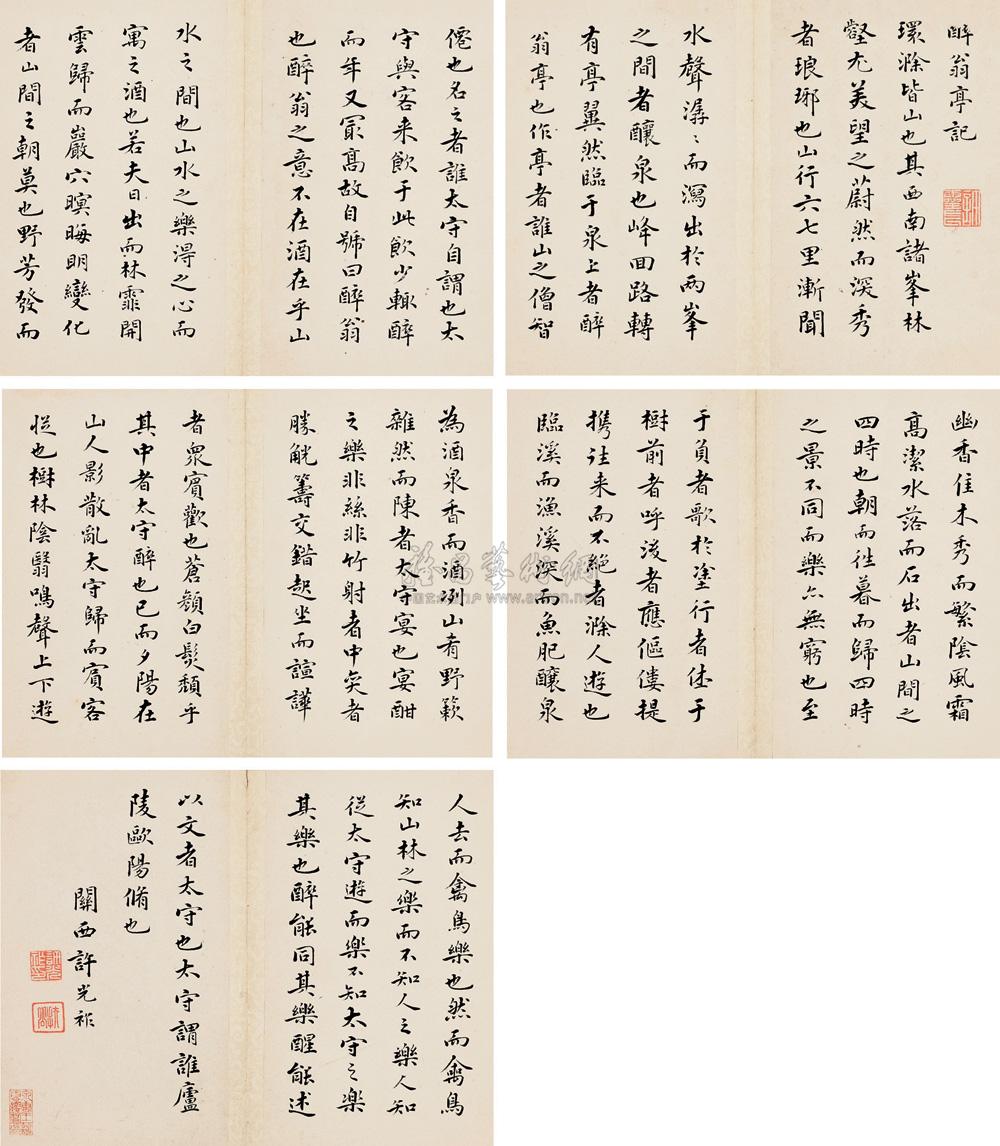 醉翁亭記
環滁皆山也其西南諸峯林
壑尤美望之蔚然而深秀
者琅琊也山行六七里漸聞
水聲潺〻而瀉出於兩峯
之間者釀泉也峰回路轉
有亭翼然臨于泉上者醉
翁亭也作亭者誰山之僧智
僊也名之者誰太守自謂也太
守與客来飲于此飲少輒醉
而年又冣高故自號曰醉翁
也醉翁之意不在酒在乎山
水之間也山水之樂得之心而
寓之酒也若夫日出而林霏開
雲歸而巖穴暝晦明變化
者山間之朝莫也野芳發而
幽香佳木秀而繁陰風霜
高潔水落而石出者山間之
四時也朝而往暮而歸四時
之景不同而樂亦無窮也至
于負者歌於塗行者休于
樹前者呼後者應傴僂提
携往来而不絕者滁人遊也
臨溪而漁溪深而魚肥釀泉
為酒泉香而酒洌山肴野蔌
雜然而陳者太守宴也宴酣
之樂非絲非竹射者中奕者
勝觥籌交錯起坐而諠譁
者衆賓歡也蒼顏白髮頹乎
其中者太守醉也已而夕陽在
山人影散亂太守歸而賓客
從也樹林陰翳鳴聲上下遊
人去而禽鳥樂也然而禽鳥
知山林之樂而不知人之樂人知
從太守遊而樂不知太守之樂
其樂也醉能同其樂醒能述
以文者太守也太守謂誰廬
陵歐陽脩也
關西許光祚